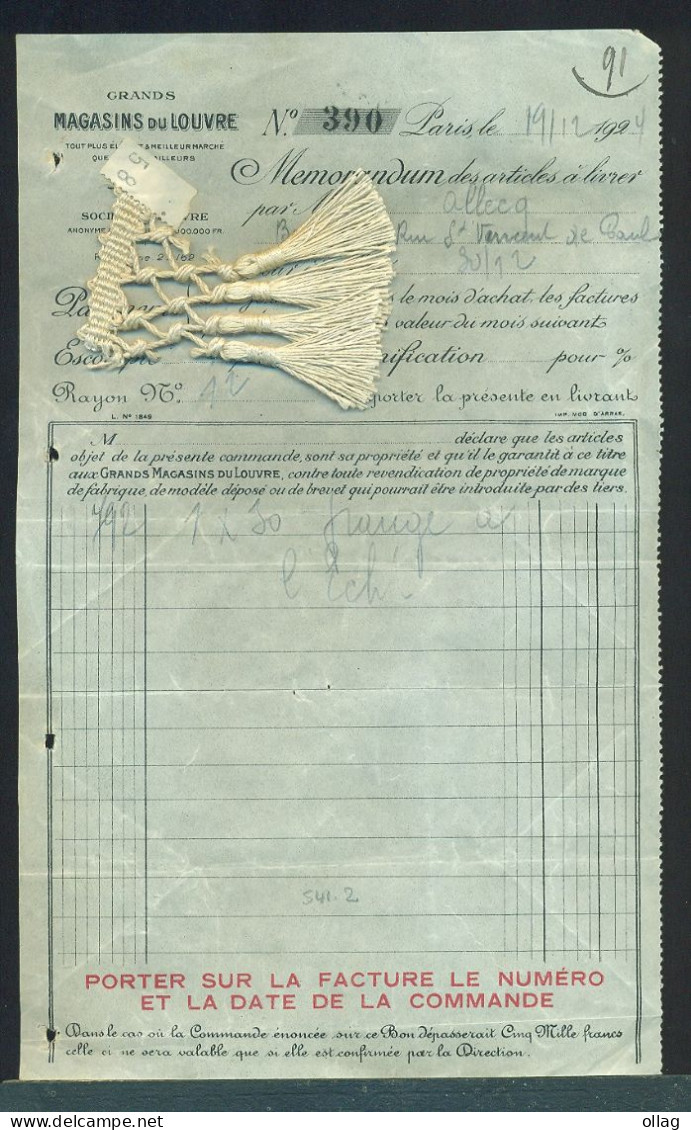 91
GRANDS
MAGASINS DU LOUVRE
TOUT PLUS & MEILLEUR MARCHÉ
QUE AILLEURS
58
N° 390 Paris, le 19/12 1924
Memorandum des articles à livrer
par M Allecq
Rue St Vincent de Paul
30/12
le mois d'achat, les factures
valeur du mois suivant
nification pour %
Rayon N° 12 porter la présente en livrant
L. N° 1849
IMP. NOUV. D'ARRAS.
M déclare que les articles
objet de la présente commande, sont sa propriété et qu'il le garantit à ce titre
aux GRANDS MAGASINS DU LOUVRE, contre toute revendication de propriété de marque
de fabrique, de modèle déposé ou de brevet qui pourrait être introduite par des tiers.
792 1 x 30 frange a/
l'Ech.
541.2
PORTER SUR LA FACTURE LE NUMÉRO
ET LA DATE DE LA COMMANDE
Dans le cas où la Commande énoncée sur ce Bon dépasserait Cinq Mille francs
celle ci ne sera valable que si elle est confirmée par la Direction.
ollag